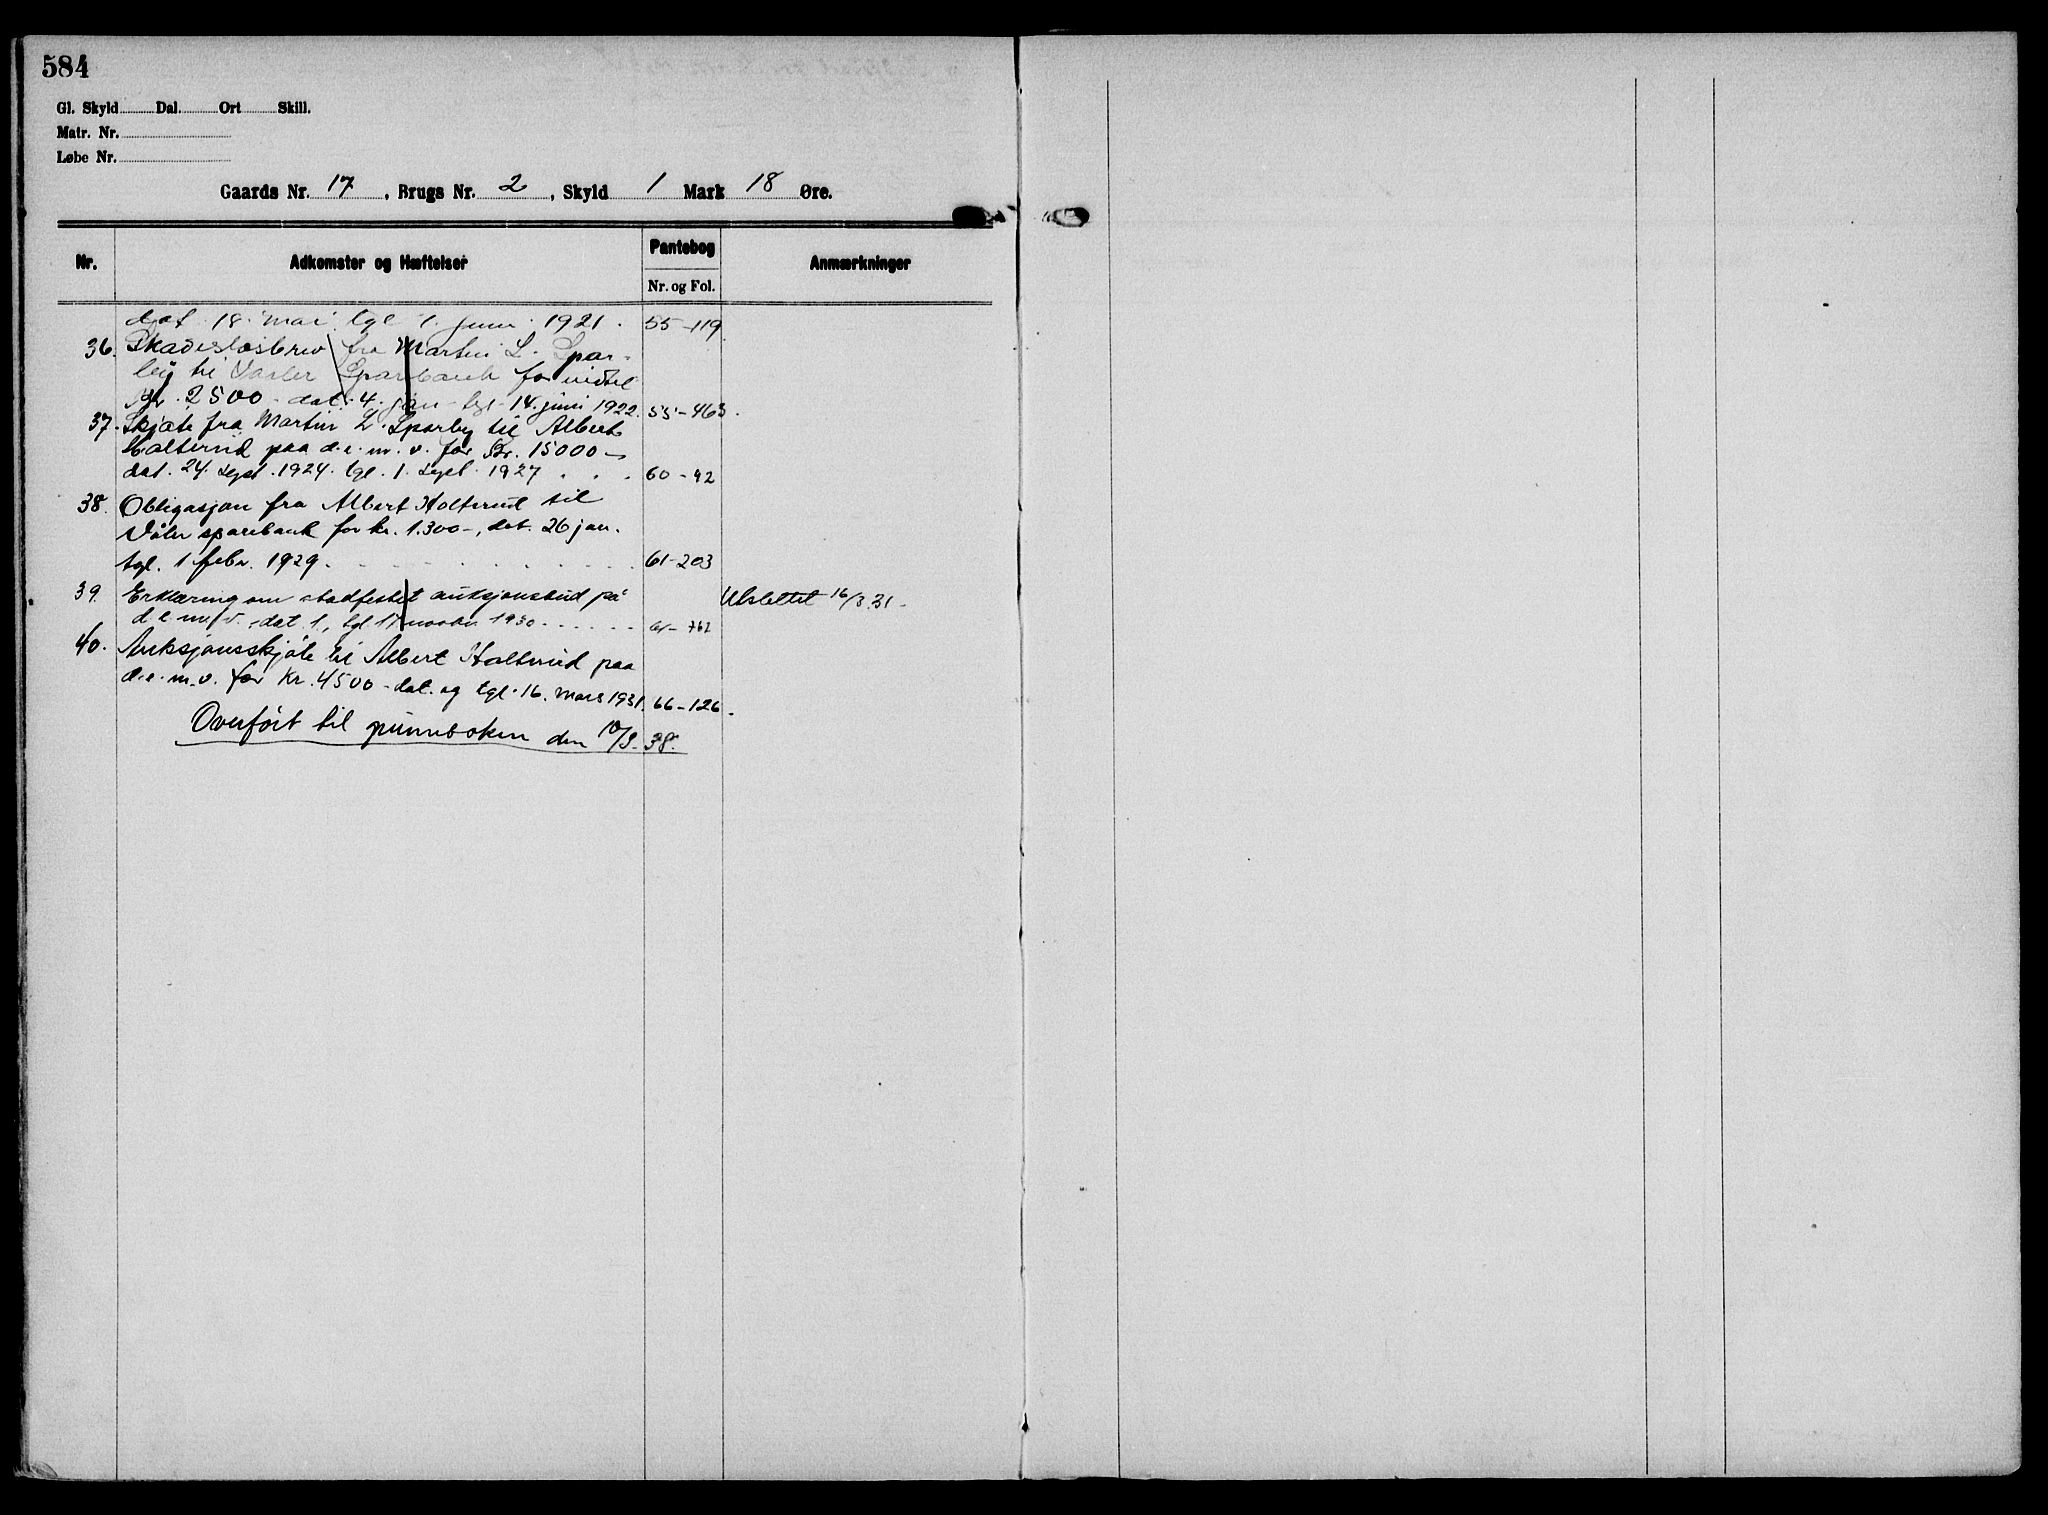 584
Gl. Skyld Dal. Ort Skill.
Matr. Nr.
Løbe Nr.
Gaards Nr. 17, Brugs Nr. 2, Skyld 1 Mark 18 Øre.
Nr. Adkomster og Hæftelser Pantebog Nr. og Fol. Anmærkninger
dat. 18. mai tgl 1. juni 1921. 55-119
36. Skadesløsbrev fra Martin L. Spar-
by til Vaaler Sparebank for indtil
kr. 2500 - dat. 4. jan - tgl - 14. juni 1922. 55-463.
37. Skjøte fra Martin L. Sparby til Albert
Halterud paa d. e. m. v. for Kr. 15000 -
dat. 24. sept. 1924. tgl. 1. sept. 1927 . . . 60-92
38. Obligasjon fra Albert Holterud til
Våler sparebank for kr. 1.300-, dat. 26 jan.
tgl. 1 febr. 1929. 61-203
39. Erklæring om stadfestet auksjonsbud på
d e m v. - dat. 1., tgl 17 novbr. 1930. 61-762 Utslettet 16/3.31.
40. Auksjonsskjøte til Albert Halterud paa
d. e. m. v. for kr. 4500 - dat. og tgl. 16. mars 1931. 66-126.
Overført til grunnboken den 10/3. 38.